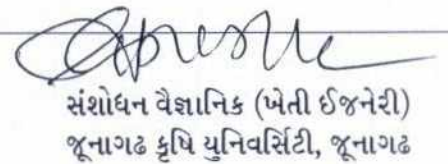 સંશોધન વૈજ્ઞાનિક (ખેતી ઈજનેરી)
જૂનાગઢ કૃષિ યુનિવર્સિટી, જૂનાગઢ